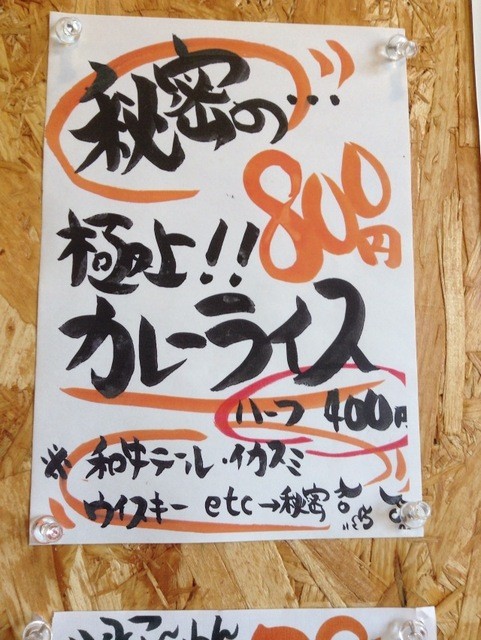 秘密の…
800円
極上!!
カレーライス
ハーフ 400円
※ 和牛テール・イカスミ
ウイスキー etc→秘密